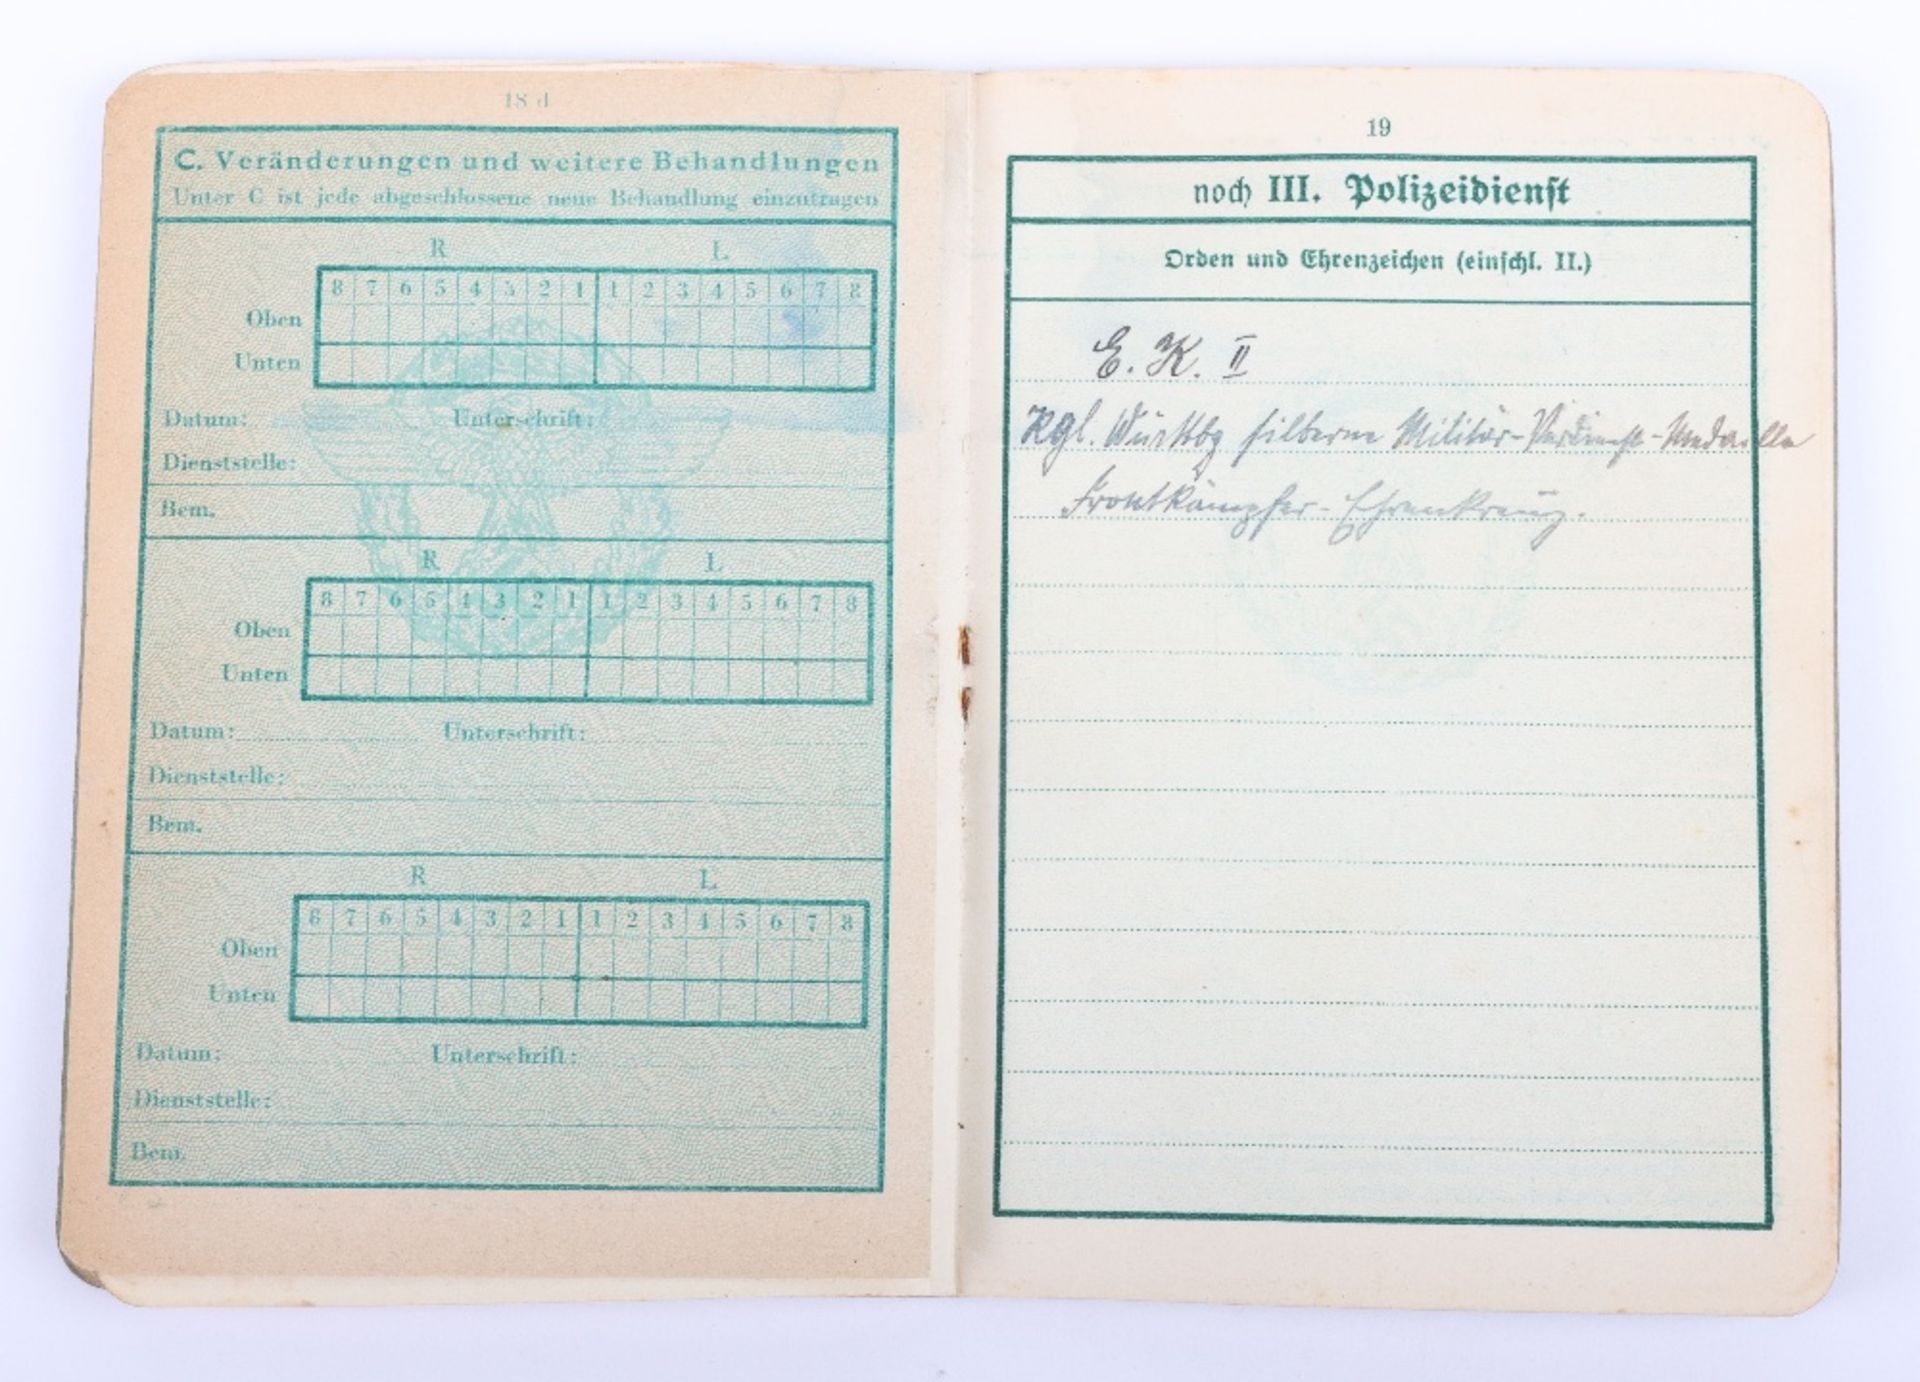 18 d
C. Veränderungen und weitere Behandlungen
Unter C ist jede abgeschlossene neue Behandlung einzutragen
R L
8 7 6 5 4 3 2 1 1 2 3 4 5 6 7 8
Oben
Unten
Datum: Unterschrift:
Dienststelle:
Bem.
R L
8 7 6 5 4 3 2 1 1 2 3 4 5 6 7 8
Oben
Unten
Datum: Unterschrift:
Dienststelle:
Bem.
R L
8 7 6 5 4 3 2 1 1 2 3 4 5 6 7 8
Oben
Unten
Datum: Unterschrift:
Dienststelle:
Bem.
19
noch III. Polizeidienst
Orden und Ehrenzeichen (einschl. II.)
E. K. II
Kgl. Württbg silberne Militär-Verdienst-Medaille
Frontkämpfer-Ehrenkreuz.